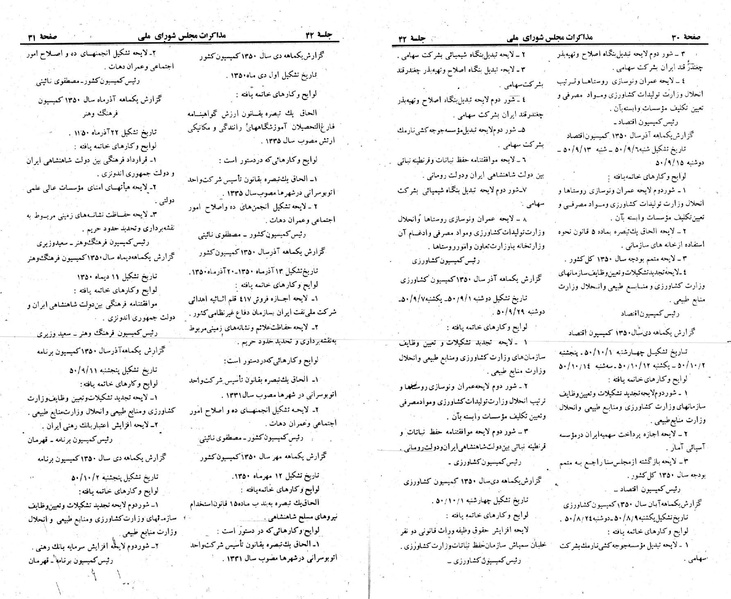 صفحه ۳۰
مذاکرات مجلس شورای ملی
جلسه ۲۲
۳ – شور دوم لایحه تبدیل بنگاه اصلاح و تهیه بذر
چغندر قند ایران بشرکت سهامی.
۴ – لایحه عمران ونوسازی روستاها و ترتیب
انحلال وزارت تولیدات کشاورزی و مواد مصرفی و
تعیین تکلیف مؤسسات وابسته بآن.
رئیس کمیسیون اقتصاد –
گزارش یکماهه آذر سال ۱۳۵۰ کمیسیون اقتصاد
تاریخ تشکیل شنبه ۵۰/۹/۶ – شنبه ۵۰/۹/۱۳
دوشنبه ۵۰/۹/۱۵
لوایح و کارهای خاتمه یافته :
۱ – شوردوم لایحه عمران ونوسازی روستاها و
انحلال وزارت تولیدات کشاورزی ومواد مصرفی و
تعیین تکلیف مؤسسات وابسته بآن.
۲ – لایحه الحاق یک تبصره بماده ۵ قانون نحوه
استفاده ازخانه های سازمانی.
۳ – لایحه متمم بودجه سال ۱۳۵۰ کل کشور.
۴ – لایحه تجدید تشکیلات و تعیین وظایف سازمانهای
وزارت کشاورزی و منابع طبیعی و انحلال وزارت منابع
طبیعی.
رئیس کمیسیون اقتصاد
گزارش یکماهه دی سال ۱۳۵۰ کمیسیون اقتصاد
تاریخ تشکیل چهارشنبه ۵۰/۱۰/۱ پنجشنبه
۵۰/۱۰/۲ – یکشنبه ۵۰/۱۰/۱۲ – سه شنبه ۵۰/۱۰/۱۴
لوایح و کارهای خاتمه یافته :
۱ – شوردوم لایحه تجدید تشکیلات و تعیین وظایف
سازمانهای وزارت کشاورزی ومنابع طبیعی و انحلال
وزارت منابع طبیعی.
۲ – لایحه اجازه پرداخت سهمیه ایران در مؤسسه
آسیائی آمار.
۳ – لایحه بازگشته ازمجلس سنا راجع به متمم
بودجه سال ۱۳۵۰ کل کشور.
رئیس کمیسیون اقتصاد –
گزارش یکماهه آبان سال ۱۳۵۰ کمیسیون کشاورزی
تاریخ تشکیل یکشنبه ۵۰/۸/۹ دوشنبه ۵۰/۸/۲۴
لوایح وکارهای خاتمه یافته :
۱ – لایحه تبدیل مؤسسه جوجه کشی نارمک بشرکت
سهامی.
۲ – لایحه تبدیل بنگاه شیمیائی بشرکت سهامی.
۳ – لایحه تبدیل بنگاه اصلاح و تهیه بذر چغندر قند
بشرکت سهامی.
۴ – شور دوم لایحه تبدیل بنگاه اصلاح و تهیه بذر
چغندر قند ایران بشرکت سهامی.
۵ – شور دوم لایحه تبدیل مؤسسه جوجه کشی نارمک
بشرکت سهامی.
۶ – لایحه موافقتنامه حفظ نباتات و قرنطینه نباتی
بین دولت شاهنشاهی ایران ودولت رومانی.
۷ – شور دوم لایحه تبدیل بنگاه شیمیائی بشرکت
سهامی.
۸ – لایحه عمران ونوسازی روستاها وانحلال
وزارت تولیدات کشاورزی و مواد مصرفی وادغام آن
وزارتخانه باوزارت تعاون و امور روستاها.
رئیس کمیسیون کشاورزی
گزارش یکماهه آذر سال ۱۳۵۰ کمیسیون کشاورزی
تاریخ تشکیل دوشنبه ۵۰/۹/۱ – یکشنبه ۵۰/۹/۷
دوشنبه ۵۰/۹/۲۹
لوایح و کارهای خاتمه یافته :
۱ – لایحه تجدید تشکیلات و تعیین وظایف
سازمان های وزارت کشاورزی ومنابع طبیعی و انحلال
وزارت منابع طبیعی.
۲ – شور دوم لایحه عمران و نوسازی روستاها و
ترتیب انحلال وزارت تولیدات کشاورزی ومواد مصرفی
وتعیین تکلیف مؤسسات وابسته بآن.
۳ – شور دوم لایحه موافقتنامه حفظ نباتات و
قرنطینه نباتی بین دولت شاهنشاهی ایران ودولت رومانی.
رئیس کمیسیون کشاورزی –
گزارش یکماهه دی سال ۱۳۵۰ کمیسیون کشاورزی
تاریخ تشکیل چهارشنبه ۵۰/۱۰/۱
لوایح و کارهای خاتمه یافته :
لایحه افزایش حقوق وظیفه وراث قانونی دو نفر
خلبان سمپاش سازمان حفظ نباتات وزارت کشاورزی.
رئیس کمیسیون کشاورزی
جلسه ۲۲
مذاکرات مجلس شورای ملی
صفحه ۳۱
گزارش یکماهه دی سال ۱۳۵۰ کمیسیون کشور
تاریخ تشکیل اول دی ماه ۱۳۵۰.
لوایح و کارهای خاتمه یافته :
الحاق یک تبصره بقانون ارزش گواهینامه
فارغ التحصیلان آموزشگاههای رانندگی و مکانیکی
ارتش مصوب سال ۱۳۳۵.
لوایح وکارهائی که در دستور است :
۱ – الحاق یک تبصره بقانون تأسیس شرکت واحد
اتوبوسرانی درشهرها مصوب سال ۱۳۳۵.
۲ – لایحه تشکیل انجمن های ده واصلاح امور
اجتماعی و عمران دهات.
رئیس کمیسیون کشور – مصطفوی نائینی
گزارش یکماهه آذر سال ۱۳۵۰ کمیسیون کشور
تاریخ تشکیل ۱۳ آذرماه ۱۳۵۰ – ۲۰ آذرماه ۱۳۵۰.
لوایح و کارهای خاتمه یافته :
۱ – لایحه اجازه فروش ۴۱۷ قلم اثاثیه اهدائی
شرکت ملی نفت ایران بسازمان دفاع غیرنظامی کشور.
۲ – لایحه حفاظت علائم ونشانه های زمینی مربوط
به نقشه برداری و تحدید حدود حریم.
لوایح و کارهائی که دردستور است:
۱ – الحاق یک تبصره بقانون تأسیس شرکت واحد
اتوبوسرانی در شهرها مصوب سال ۱۳۳۱.
۲ – لایحه تشکیل انجمنهای ده و اصلاح امور
اجتماعی و عمران دهات.
رئیس کمیسیون کشور – مصطفوی نائینی
گزارش یکماهه مهر سال ۱۳۵۰ کمیسیون کشور
تاریخ تشکیل ۱۲ مهرماه ۱۳۵۰.
لوایح و کارهای خاتمه یافته :
الحاق یک تبصره به بند ب ماده ۱۵ قانون استخدام
نیروهای مسلح شاهنشاهی.
لوایح و کارهائی که در دستور است :
۱ – الحاق یک تبصره بقانون تأسیس شرکت واحد
اتوبوسرانی در شهرها مصوب سال ۱۳۳۱.
۲ – لایحه تشکیل انجمنهای ده و اصلاح امور
اجتماعی وعمران دهات.
رئیس کمیسیون کشور – مصطفوی نائینی
گزارش یکماهه آذر ماه سال ۱۳۵۰ کمیسیون
فرهنگ وهنر
تاریخ تشکیل ۲۲ آذرماه ۱۱۵۰.
لوایح وکارهای خاتمه یافته :
۱ – قرارداد فرهنگی بین دولت شاهنشاهی ایران
و دولت جمهوری اندونزی.
۲ – لایحه هیأتهای امنای مؤسسات عالی علمی
دولتی.
۳ – لایحه حفاظت نشانه های زمینی مربوط به
نقشه برداری و تحدید حدود حریم.
رئیس کمیسیون فرهنگ وهنر – سعید وزیری
گزارش یکماهه دیماه سال ۱۳۵۰ کمیسیون فرهنگ وهنر
تاریخ تشکیل ۱۱ دیماه ۱۳۵۰
لوایح و کارهای خاتمه یافته :
موافقتنامه فرهنگی بین دولت شاهنشاهی ایران و
دولت جمهوری اندونزی.
رئیس کمیسیون فرهنگ وهنر – سعید وزیری
گزارش یکماهه آذر سال ۱۳۵۰ کمیسیون برنامه
تاریخ تشکیل پنجشنبه ۵۰/۹/۱۱
لوایح وکارهای خاتمه یافته:
۱ – لایحه تجدید تشکیلات وتعیین وظایف وزارت
کشاورزی ومنابع طبیعی وانحلال وزارت منابع طبیعی.
۲ – لایحه افزایش اعتبار بانک رهنی ایران.
رئیس کمیسیون برنامه – قهرمان
گزارش یکماهه دی سال ۱۳۵۰ کمیسیون برنامه
تاریخ تشکیل پنجشنبه ۵۰/۱۰/۲
لوایح وکارهای خاتمه یافته :
۱ – شور دوم لایحه تجدید تشکیلات وتعیین وظایف
سازمانهای وزارت کشاورزی و منابع طبیعی و انحلال
وزارت منابع طبیعی
۲ – شوردوم لایحه افزایش سرمایه بانک رهنی.
رئیس کمیسیون برنامه – قهرمان